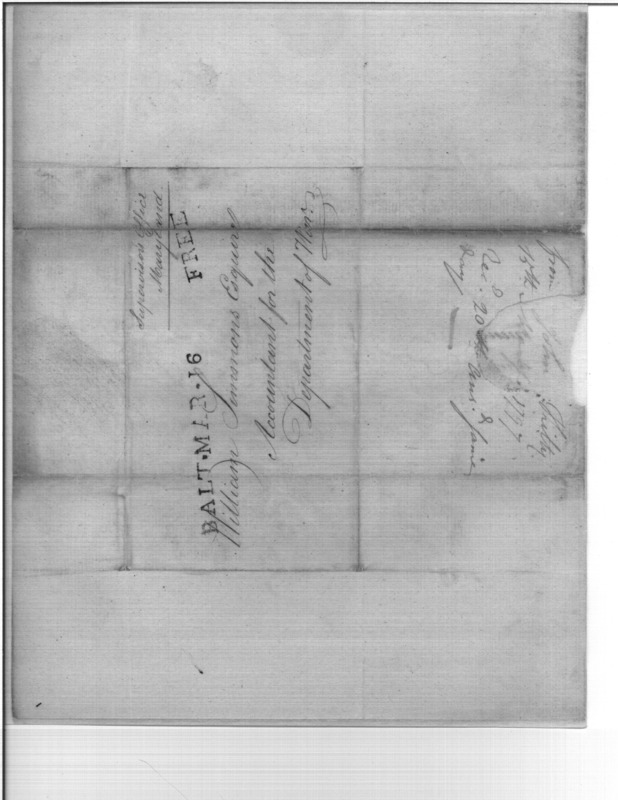 Supervisors Office
Maryland
FREE
BALT•MAR•16
William Simmons Esquire
Accountant for the
Department of War
from John Kilty
15th 1797
Rec.d 20th Ans.d Same
Day